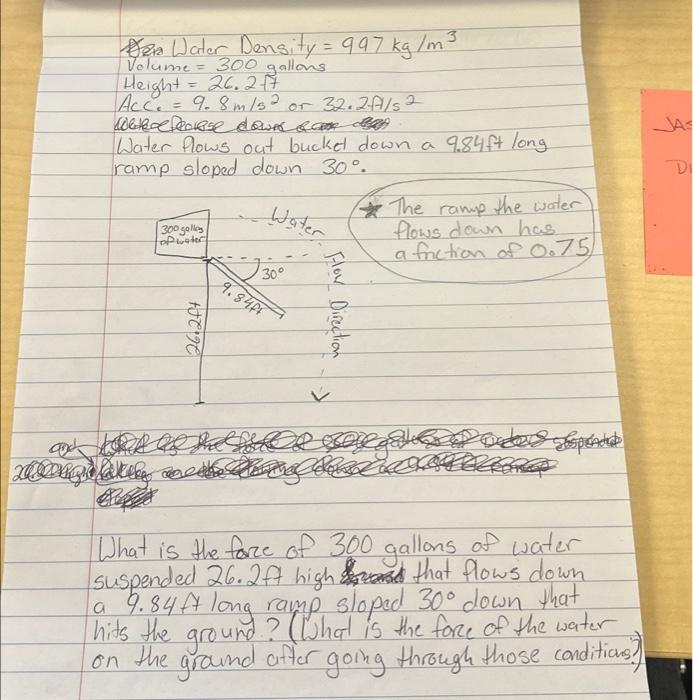 Water Density = 997 kg/m³
Volume = 300 gallons
Height = 26.2 ft
Acc. = 9.8 m/s² or 32.2 ft/s²
Water flows out bucket down a 9.84ft long
ramp sloped down 30°.
300 gallons
of water
Water
Flow Direction
30°
9.84ft
26.2ft
★ The ramp the water
flows down has
a friction of 0.75
What is the force of 300 gallons of water
suspended 26.2ft high that flows down
a 9.84ft long ramp sloped 30° down that
hits the ground? (What is the force of the water
on the ground after going through those conditions?)
JAS